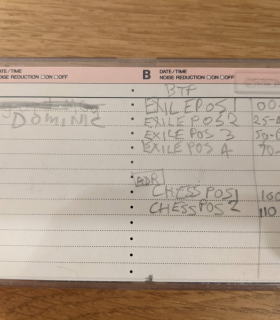 DATE/TIME
NOISE REDUCTION □ON □OFF
DOMINIC
B DATE/TIME
NOISE REDUCTION □ON □OFF
BTF
EXILE POS 1 00
EXILE POS 2 25-
EXILE POS 3 50-
EXILE POS 4 70-
ADR
CHESS POS 1 100
CHESS POS 2 110